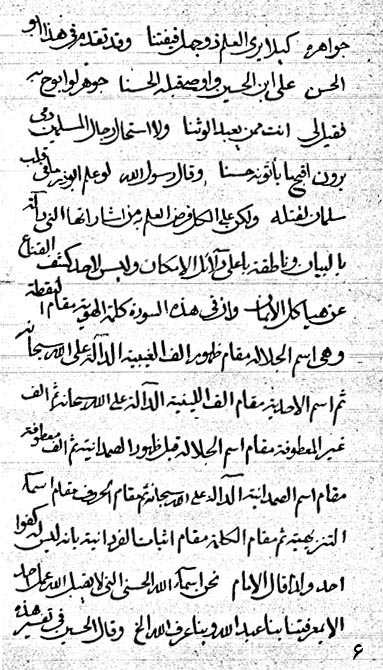 جواهره كيلا يرى العلم ذو جهل فيفتننا وقد تقدم في هذا ابو
الحسن على ابن الحسين واوصى قبله الحسنا جوهر لو ابوح به
لقيل لى انت ممن يعبد الوثنا ولا استحل رجال المسلمين دمى
يرون اقبح ما يأتونه حسنا وقال رسول الله لو علم ابوذر ما فى قلب
سلمان لقتله ولكن على الكل فرض العلم من اشاراتها التى دالة
بالبيان وناطقة باعلى دلائل الامكان وليس لاحد كشف القناع
عن هياكل الايات وان فى هذه السورة كلمة الهوية مقام النقطة
وهى اسم الجلالة مقام ظهور الف الغيبية الدالة على الله سبحانه
ثم اسم الاحدية مقام الف اللينية الدالة على الله سبحانه ثم الف
غير المعطوفة مقام اسم الجلالة قبل ظهور الصمدانية ثم الف معطوفة
مقام اسم الصمدانية الدالة على الله سبحانه ثم مقام الحروف مقام اسمه
التنزيهية ثم مقام الكلمة مقام اثبات الفردانية بانه ليس له كفوا
احد ولذا قال الامام نحن اسماء الله الحسنى التى لا يقبل الله عمل احد
الا بمعرفتنا بنا عبد الله وبنا عرف الله الخ وقال الحسين فى تفسير هذه
۶